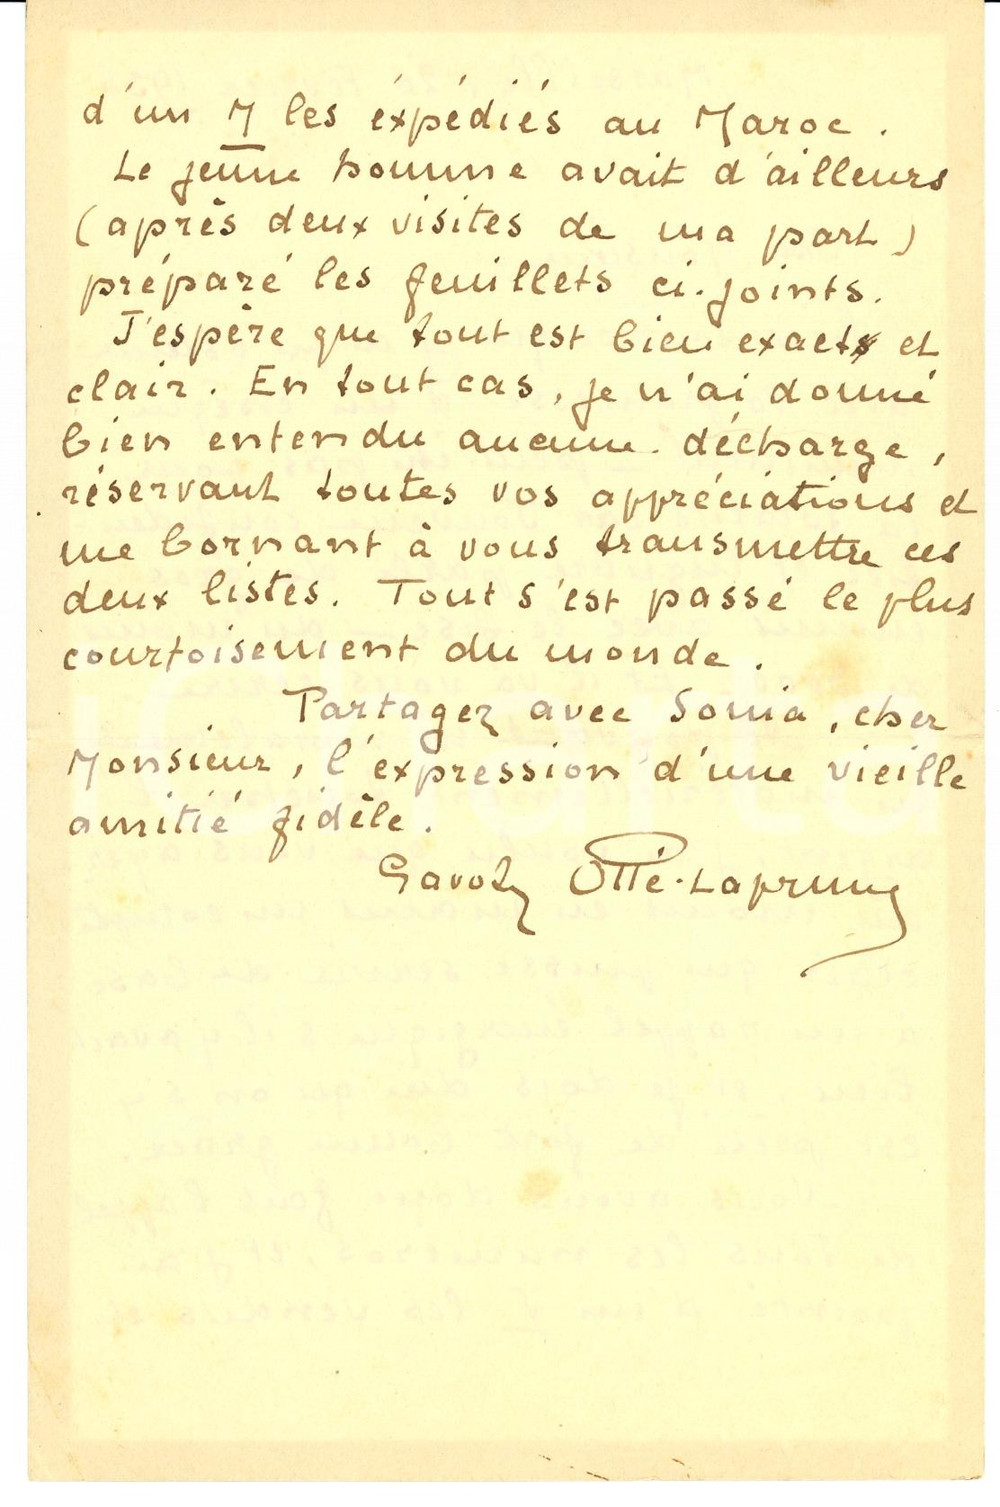 d'un M les expédiés au Maroc.
Le jeune homme avait d'ailleurs
(après deux visites de ma part)
préparé les feuillets ci-joints.
J'espère que tout est bien exact et
clair. En tout cas, je n'ai donné
bien entendu aucune décharge,
réservant toutes vos appréciations et
me bornant à vous transmettre ces
deux listes. Tout s'est passé le plus
courtoisement du monde.
Partagez avec Sonia, cher
Monsieur, l'expression d'une vieille
amitié fidèle.
Gavoty Ollé-Laprune